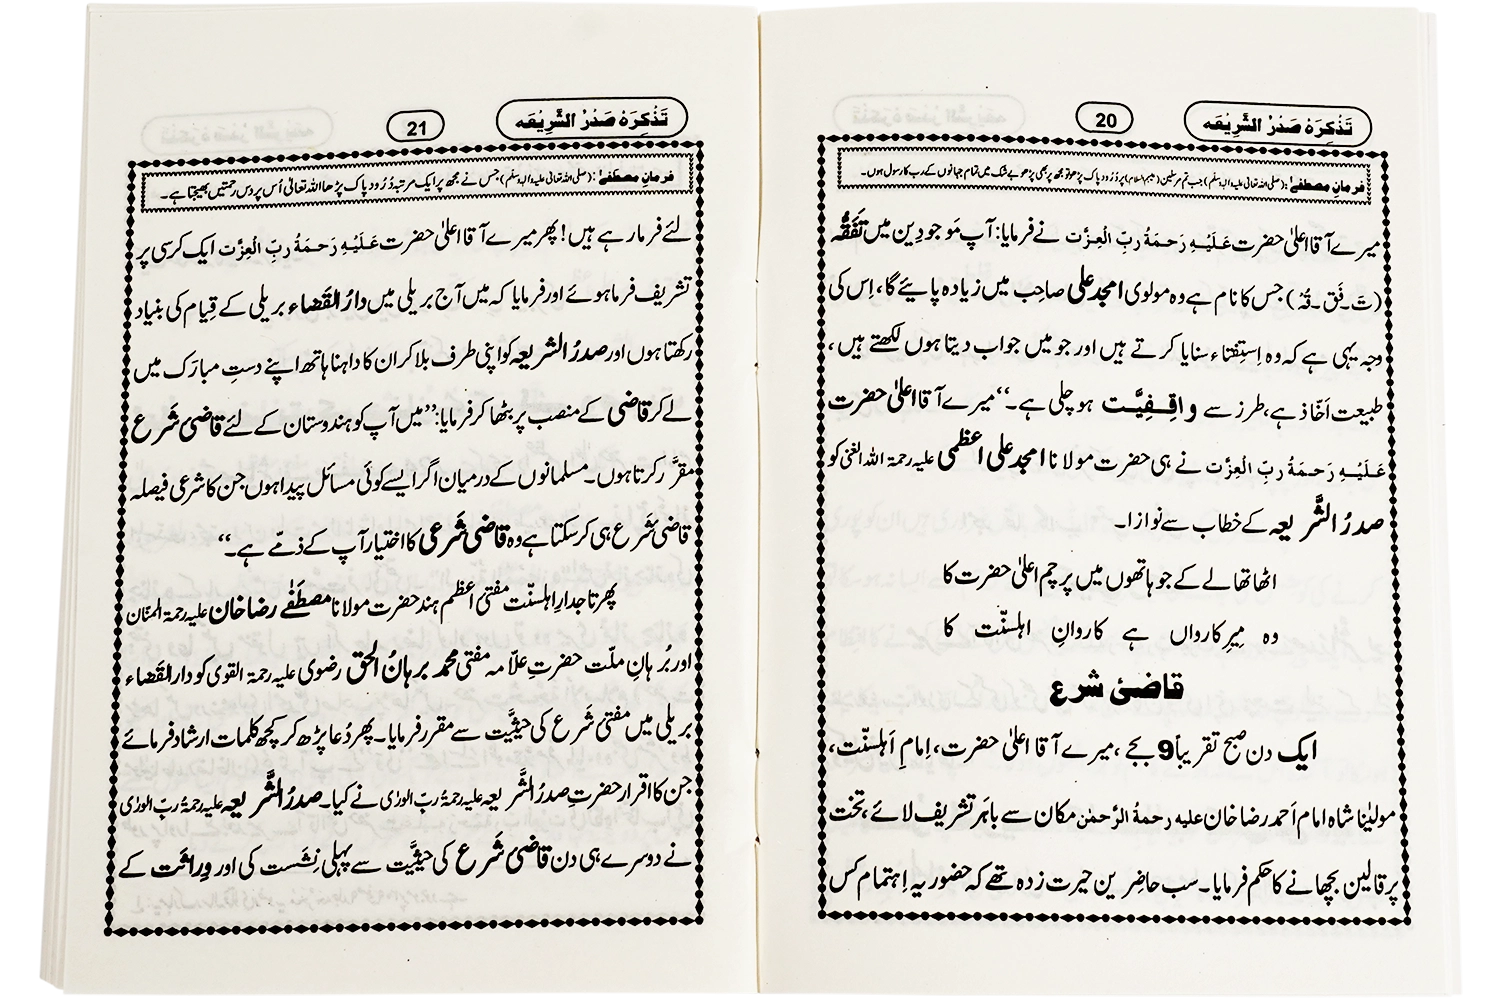 تَذْکِرَہ صَدْرُ الشَّرِیْعَہ
20
فرمانِ مصطفےٰ: (صلی اللہ تعالیٰ علیہ واٰلہ وسلّم) جب تم مرسلین (علیہم السلام) پر دُرُود پاک پڑھو تو مجھ پر بھی پڑھو بے شک میں تمام جہانوں کے رب کا رسول ہوں۔
میرے آقا اعلیٰ حضرت عَلَیْہِ رَحمَۃُ ربِّ الْعِزَّت نے فرمایا: آپ مَوجودِین میں تَفَقُّہ
(تَ۔فَقْ۔قُہْ) جس کا نام ہے وہ مولوی امجد علی صاحب میں زیادہ پایئے گا، اِس کی
وجہ یہی ہے کہ وہ اِستِفتاء سنایا کرتے ہیں اور جو میں جواب دیتا ہوں لکھتے ہیں،
طبیعت اَخّاذ ہے، طرز سے واقِفِیَّت ہو چلی ہے۔‘‘ میرے آقا اعلیٰ حضرت
عَلَیْہِ رَحمَۃُ ربِّ الْعِزَّت نے ہی حضرت مولانا امجد علی اعظمی علیہ رحمۃ اللہ الغنی کو
صدرُ الشَّریعہ کے خطاب سے نوازا۔
اٹھا تھا لے کے جو ہاتھوں میں پرچم اعلیٰ حضرت کا
وہ مِیرِ کارواں ہے کاروانِ اہلسنّت کا
قاضیٔ شرع
ایک دن صبح تقریباً 9 بجے، میرے آقا اعلیٰ حضرت، اِمامِ اَہلسنّت،
مولیٰنا شاہ امام اَحمد رضا خان علیہ رحمۃُ الرَّحمٰن مکان سے باہَر تشریف لائے، تخت
پر قالین بچھانے کا حکم فرمایا۔ سب حاضِرین حیرت زدہ تھے کہ حضور یہ اِہتمام کس
تَذْکِرَہ صَدْرُ الشَّرِیْعَہ
21
فرمانِ مصطفےٰ: (صلی اللہ تعالیٰ علیہ واٰلہ وسلّم) جس نے مجھ پر ایک مرتبہ دُرُود پاک پڑھا اللہ تعالیٰ اُس پر دس رحمتیں بھیجتا ہے۔
لئے فرما رہے ہیں! پھر میرے آقا اعلیٰ حضرت عَلَیْہِ رَحمَۃُ ربِّ الْعِزَّت ایک کرسی پر
تشریف فرما ہوئے اور فرمایا کہ میں آج بریلی میں دارُ القَضاء بریلی کے قِیام کی بنیاد
رکھتا ہوں اور صدرُ الشریعہ کو اپنی طرف بلا کر ان کا داہنا ہاتھ اپنے دستِ مبارَک میں
لے کر قاضی کے منصب پر بٹھا کر فرمایا: ’’میں آپ کو ہندوستان کے لئے قاضیِٔ شَرع
مقرَّر کرتا ہوں۔ مسلمانوں کے درمیان اگر ایسے کوئی مسائل پیدا ہوں جن کا شرعی فیصلہ
قاضیٔ شَرع ہی کر سکتا ہے وہ قاضیٔ شَرعی کا اختیار آپ کے ذمّے ہے۔‘‘
پھر تاجدارِ اہلسنّت مفتیٔ اعظم ہند حضرت مولانا مصطَفٰے رضا خان علیہ رحمۃ المنّان
اور بُرہانِ ملّت حضرتِ علّامہ مفتی محمد برہانُ الحق رضوی علیہ رحمۃ القوی کو دارالقَضاء
بریلی میں مفتیٔ شَرع کی حیثیَّت سے مقرر فرمایا۔ پھر دُعا پڑھ کر کچھ کلمات ارشاد فرمائے
جن کا اقرار حضرتِ صدرُ الشَّریعہ علیہ رحمۃُ ربِّ الورٰی نے کیا۔ صدرُ الشَّریعہ علیہ رحمۃُ ربِّ الورٰی
نے دوسرے ہی دن قاضیٔ شَرع کی حیثیَّت سے پہلی نِشَست کی اور وِراثت کے